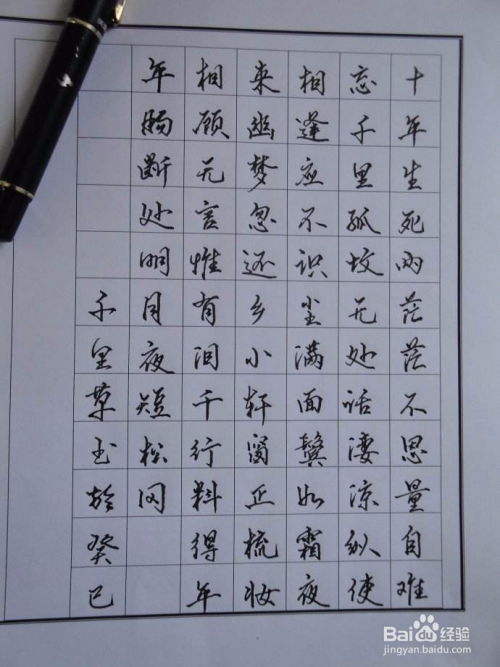 十年生死两茫茫不思量自难
忘千里孤坟无处话凄凉纵使
相逢应不识尘满面鬓如霜夜
来幽梦忽还乡小轩窗正梳妆
相顾无言惟有泪千行料得年
年肠断处明月夜短松冈
千里草书於癸巳
Bai du 经验
jingyan.baidu.com